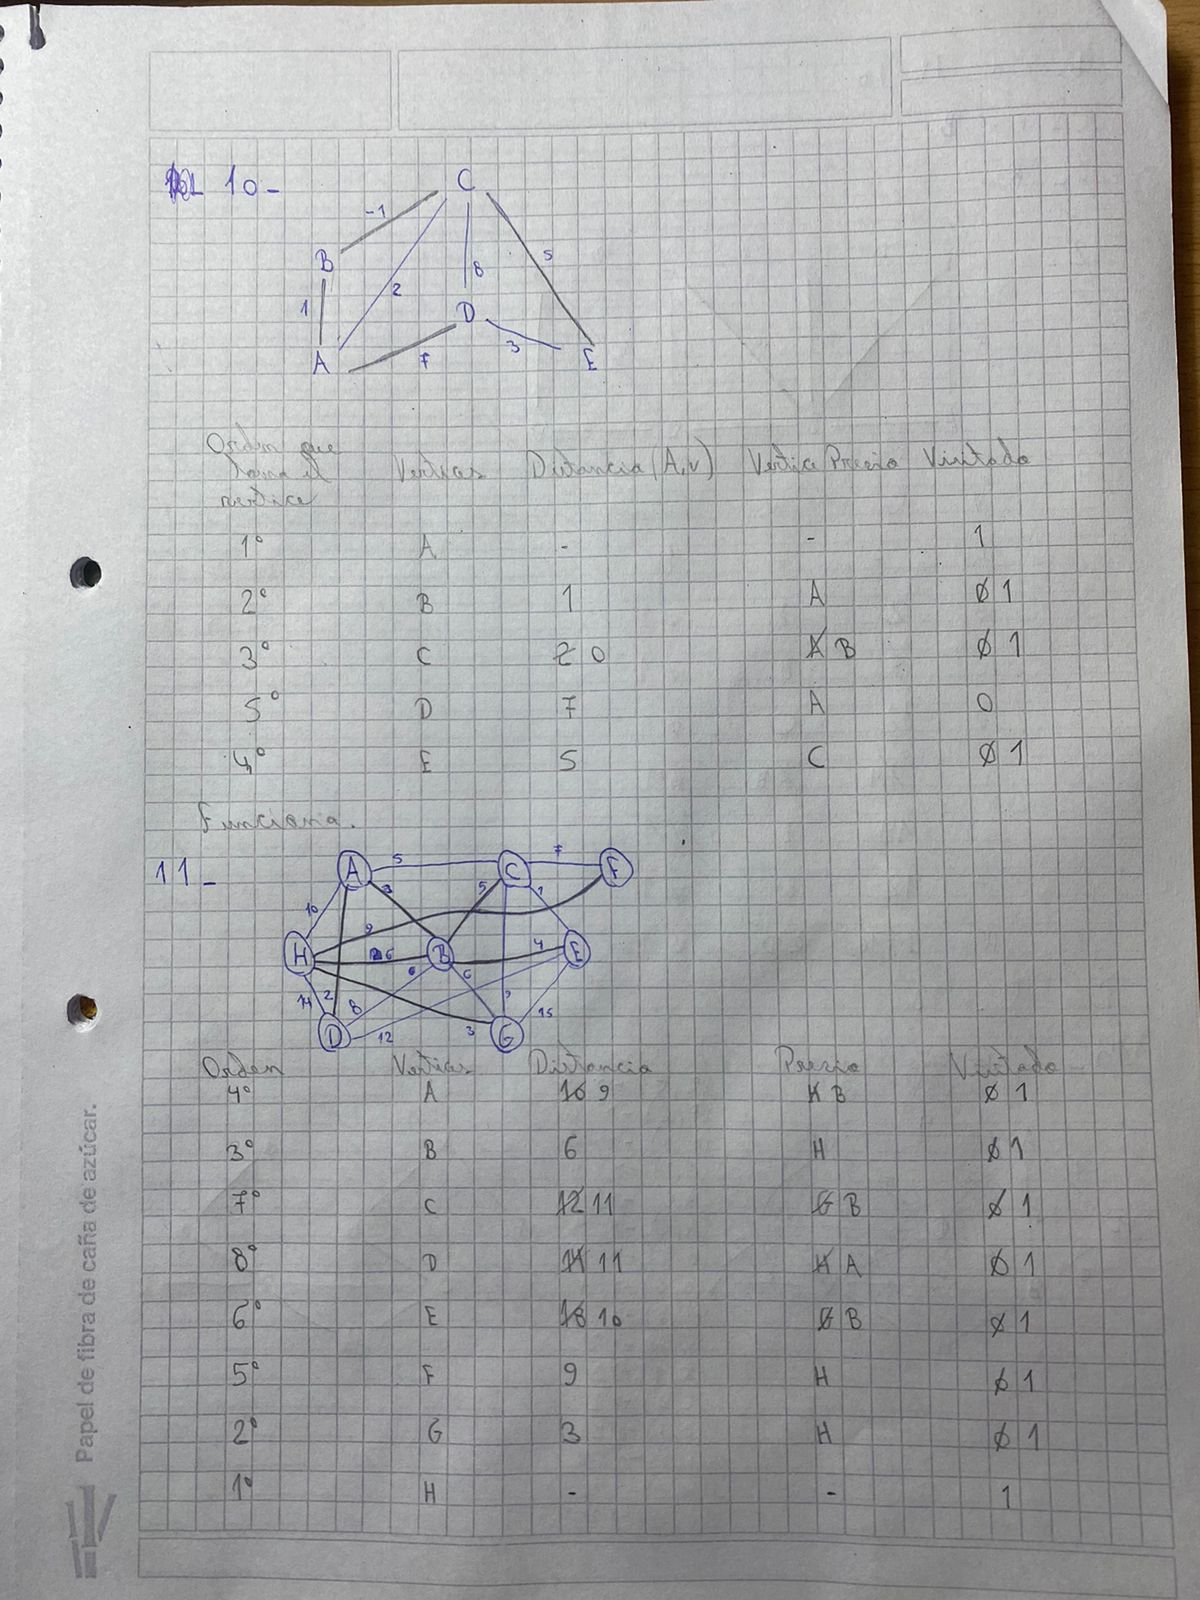 10-
C
-1
5
B
8
2
1
D
3
A
7
E
Orden que
toma el
vertice
Vertices Distancia (A,v) Vertice Previo Visitado
1º A - - 1
2º B 1 A 0 1
3º C 2 0 A B 0 1
5º D 7 A 0
4º E 5 C 0 1
Funciona.
11-
A 5 C 7 F
3 5 1
10
9
H 6 B 4 E
6 6
14 2 8
15
D 12 3 G
Orden Vertices Distancia Previo Visitado
4º A 10 9 H B 0 1
3º B 6 H 0 1
7º C 12 11 G B 0 1
8º D 14 11 H A 0 1
6º E 18 10 G B 0 1
5º F 9 H 0 1
2º G 3 H 0 1
1º H - - 1
Papel de fibra de caña de azúcar.